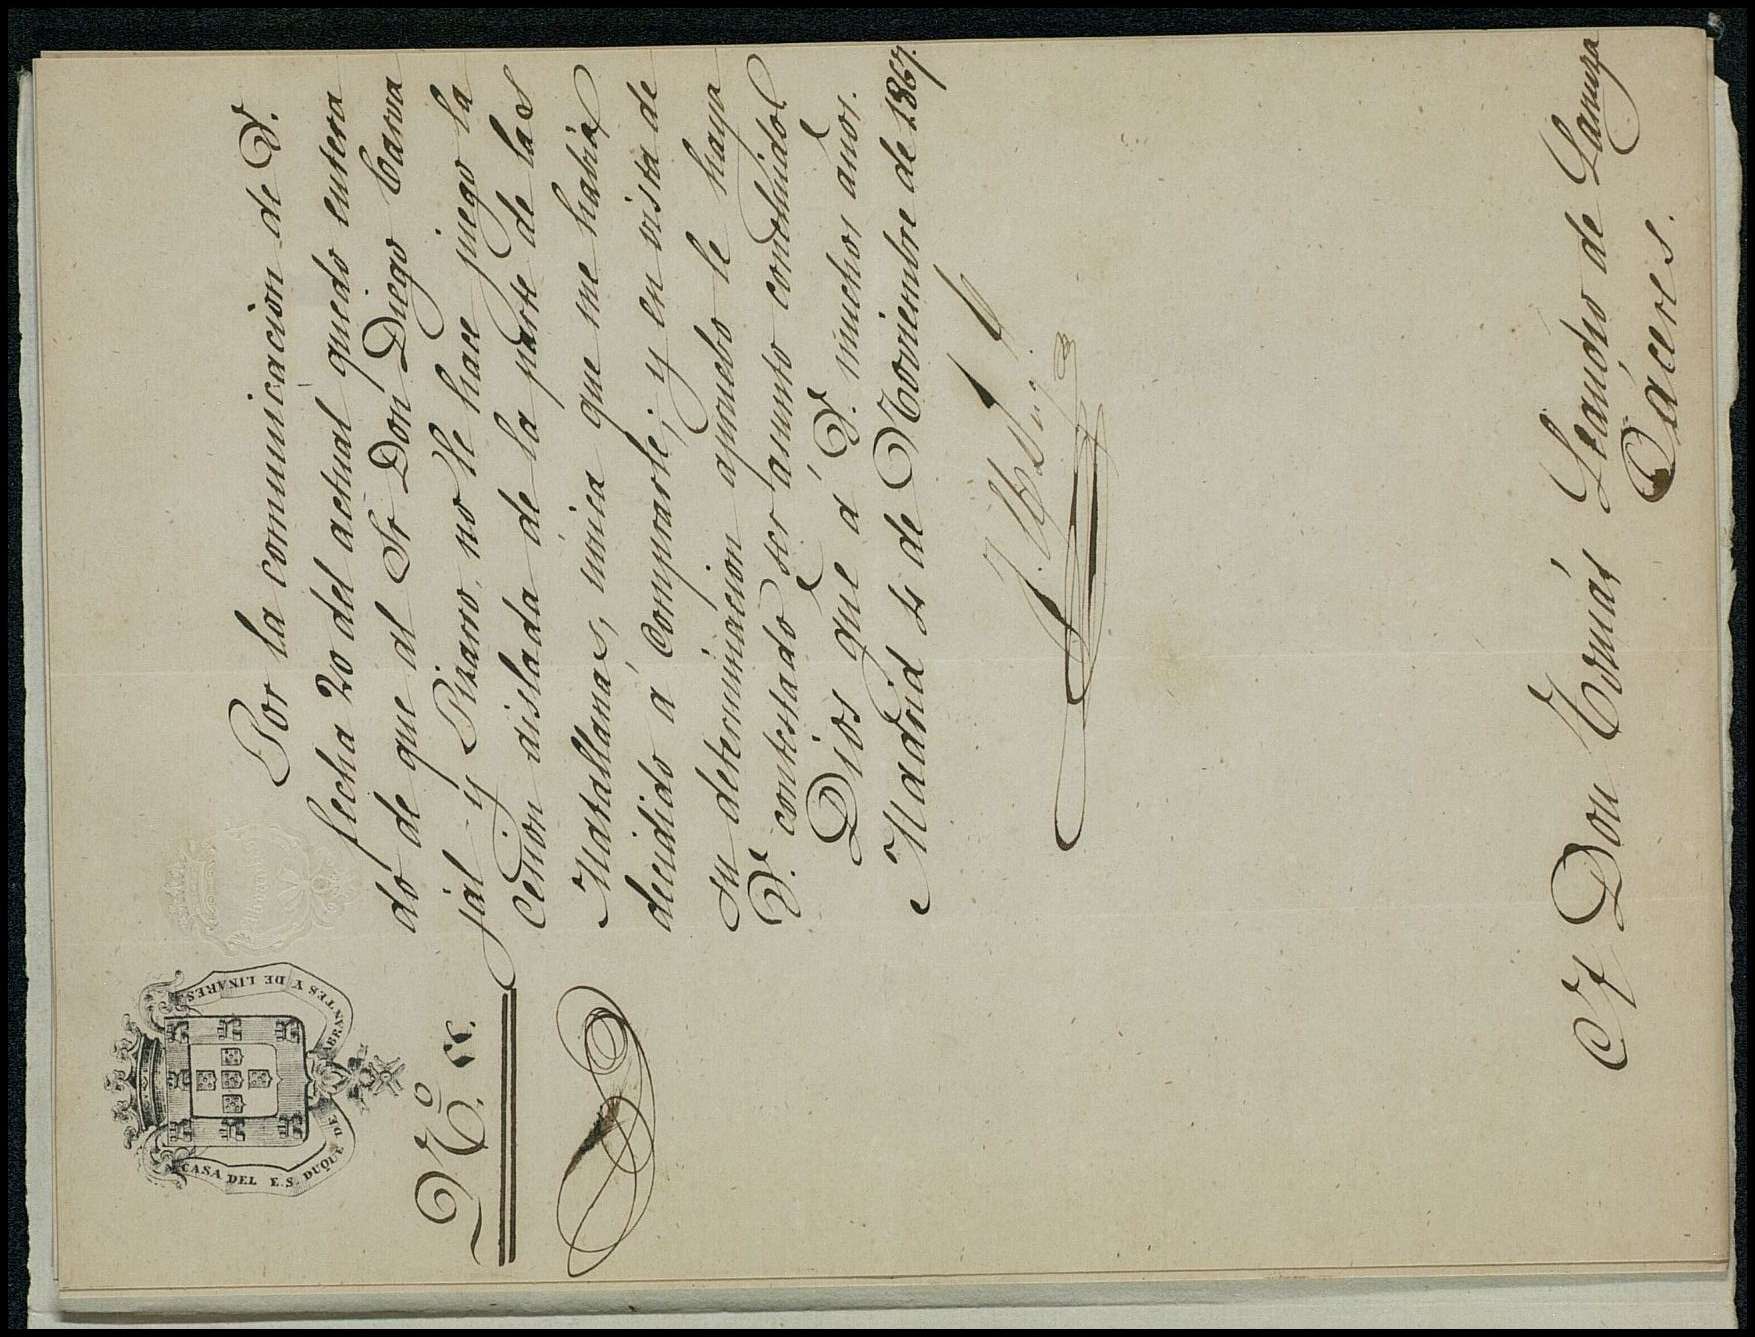 CASA DEL E. S. DUQUE DE ABRANTES Y DE LINARES
N.º 55.
Por la comunicacion de V.
fecha 20 del actual quedo entera
do de que al Sr Don Diego Carva
jal y Pizarro, no le hace juego la
cesion aislada de la parte de las
Matallanas, unica que me habia
decidido á comprarle; y en vista de
su determinacion apruebo le haya
V. contestado ser asunto concluido.
Dios gue á V. muchos años.
Madrid 24 de Noviembre de 1867.
Sr Don Tomás Leandro de Lanuza
Cáceres.